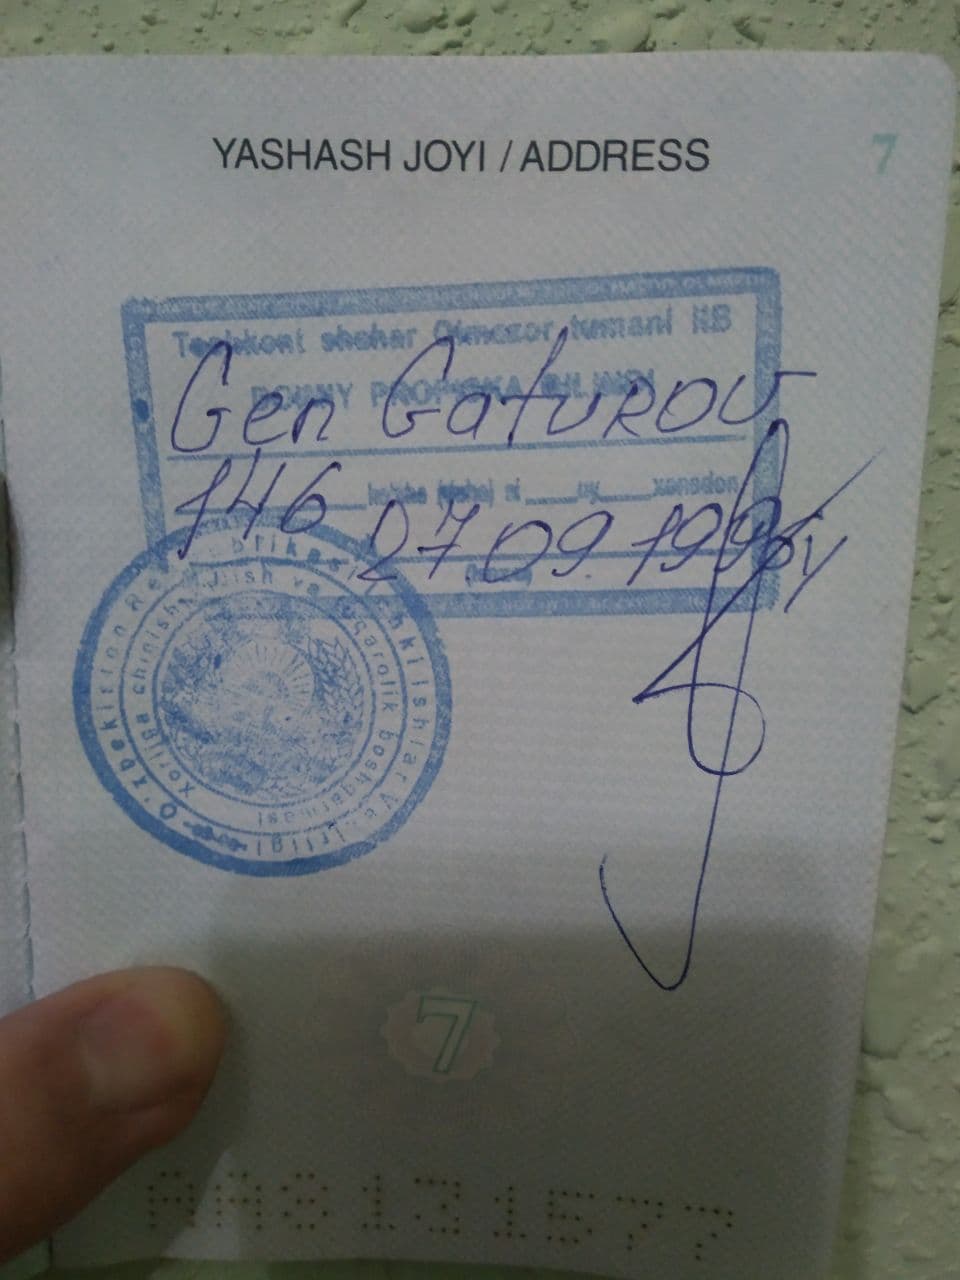 YASHASH JOYI / ADDRESS
7
Toshkent shahar Olmazor tumani IIB
DOIMIY PROPISKA QILINDI
Gen Gafurov
146
uy xonadon
27 09 199
O'zbekiston Respublikasi Ichki Ishlar Vazirligi
Xorijga chiqish va fuqarolik boshqarmasi
7